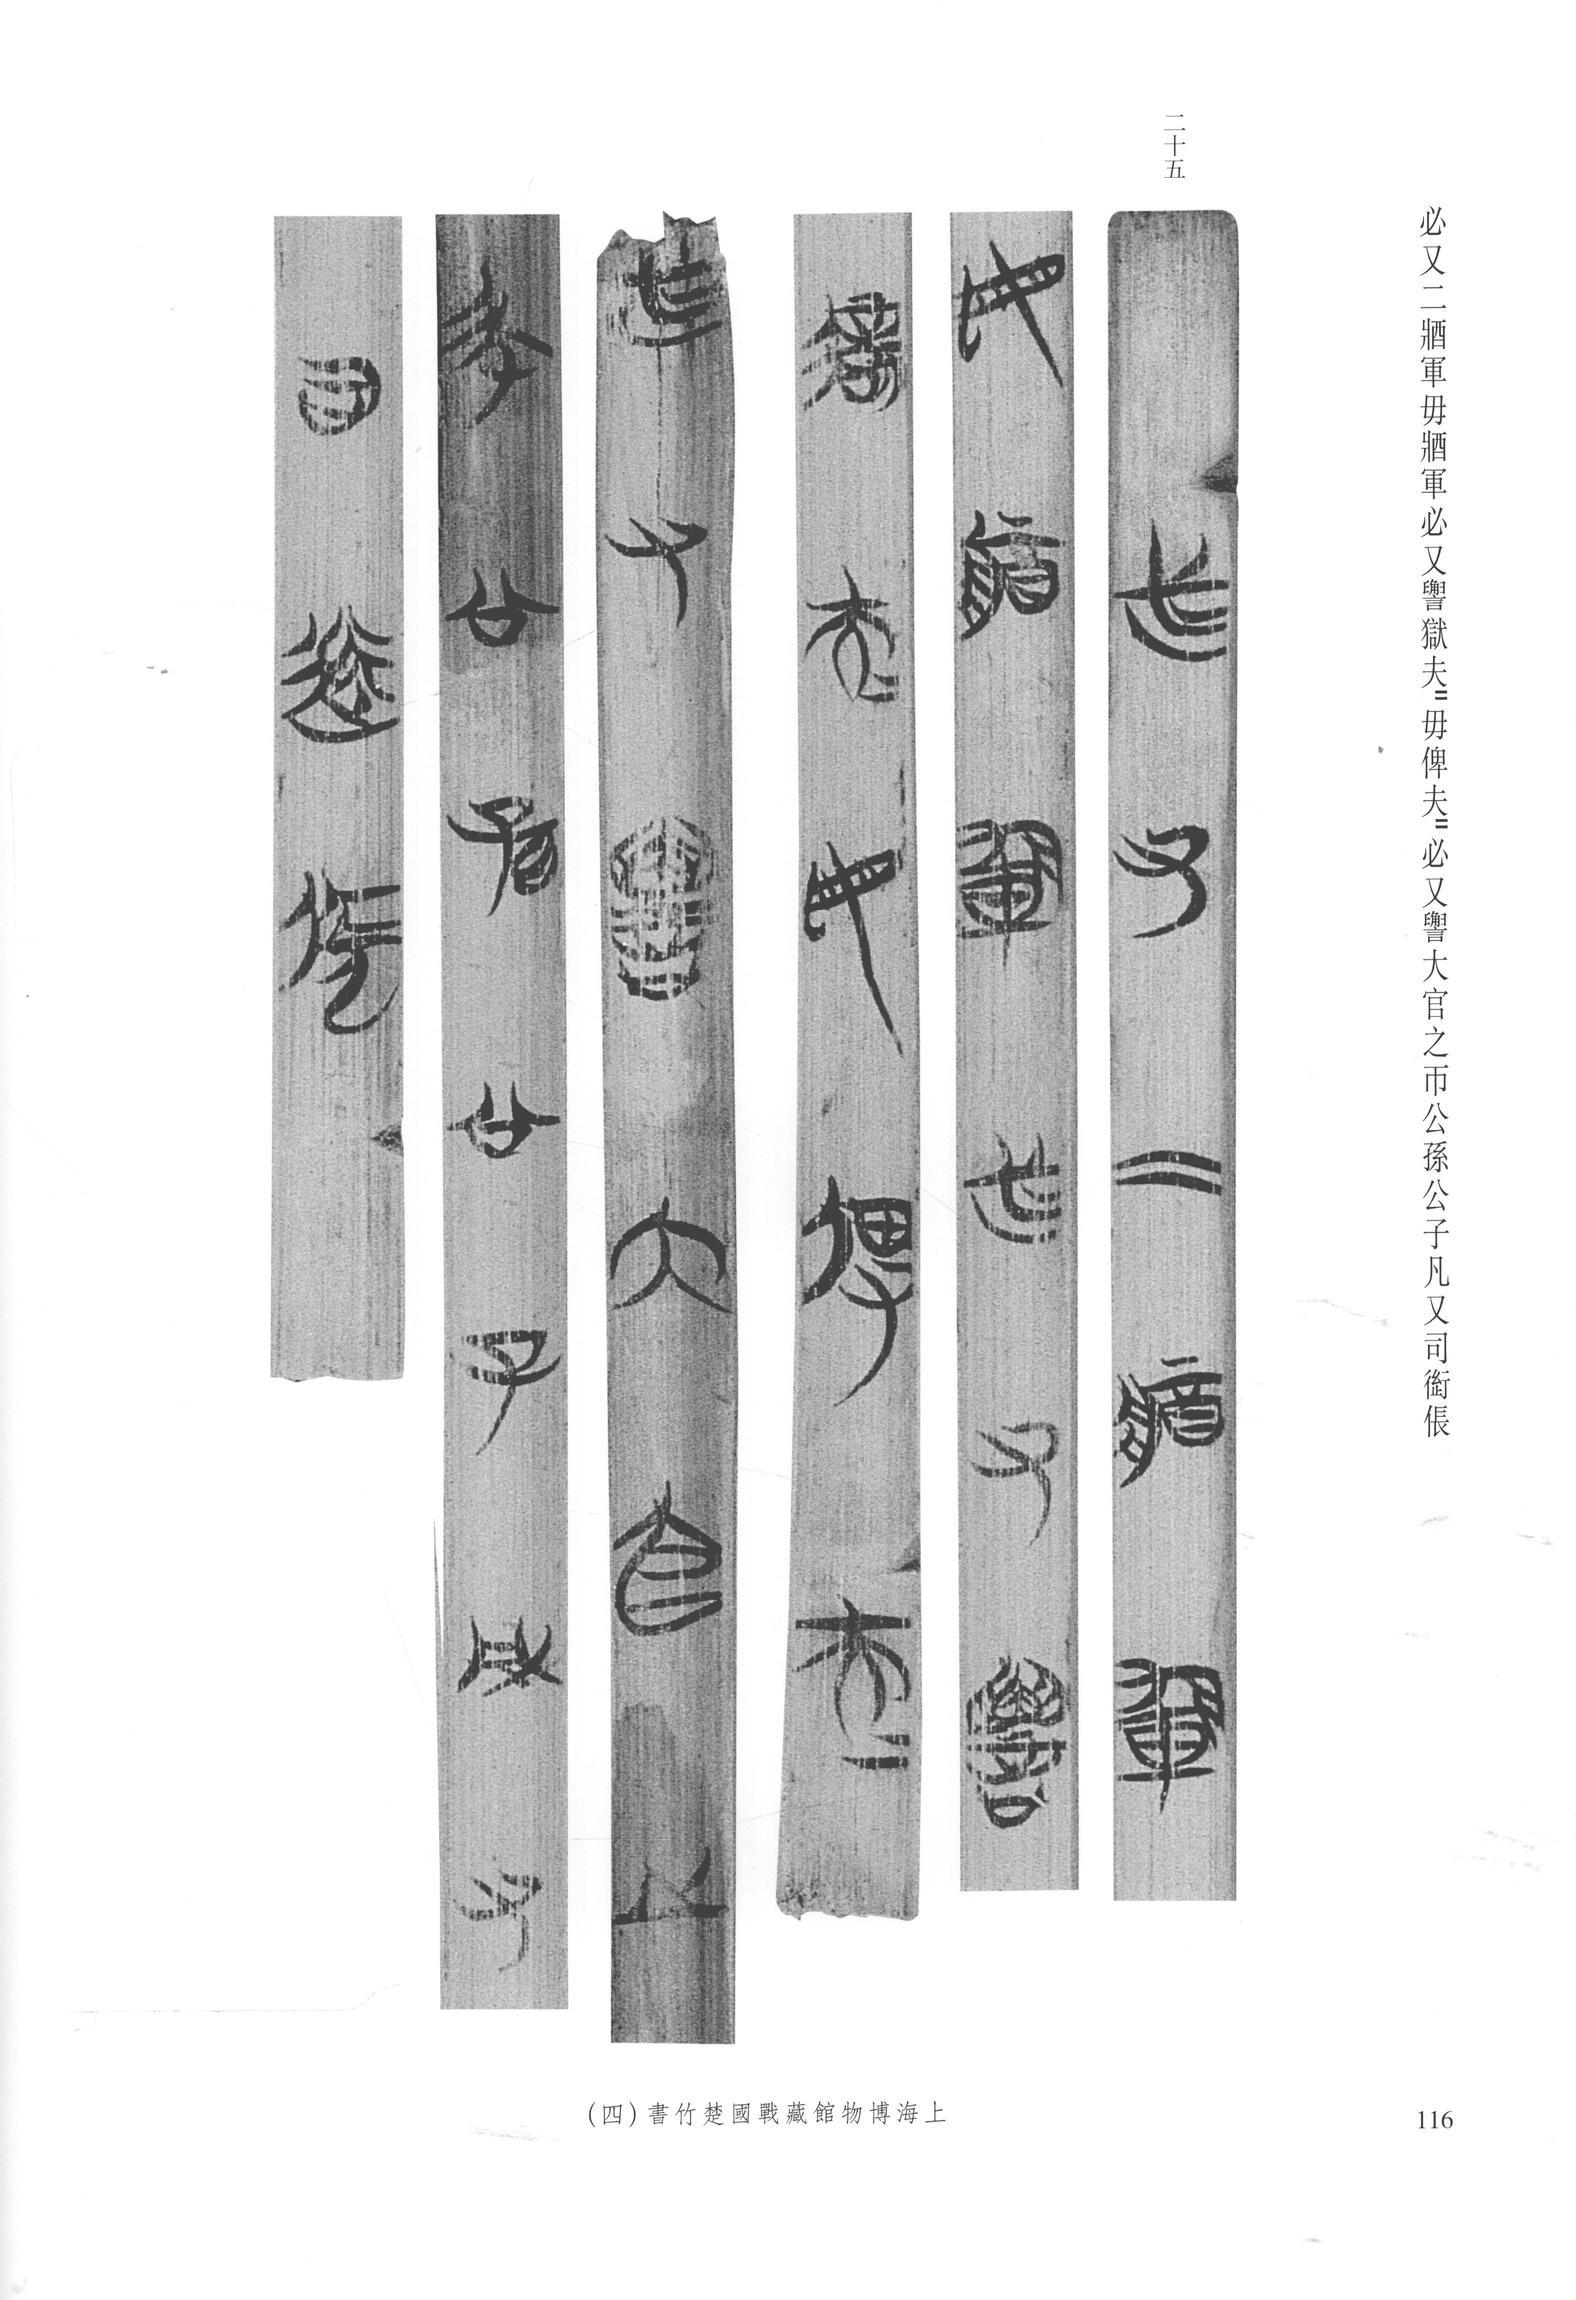 二十五
必又二𨟻軍毋𨟻軍必又𧫒獄夫〓毋俾夫〓必又𧫒大官之帀公孫公子凡又司䘖倀
上海博物館藏戰國楚竹書(四)
116